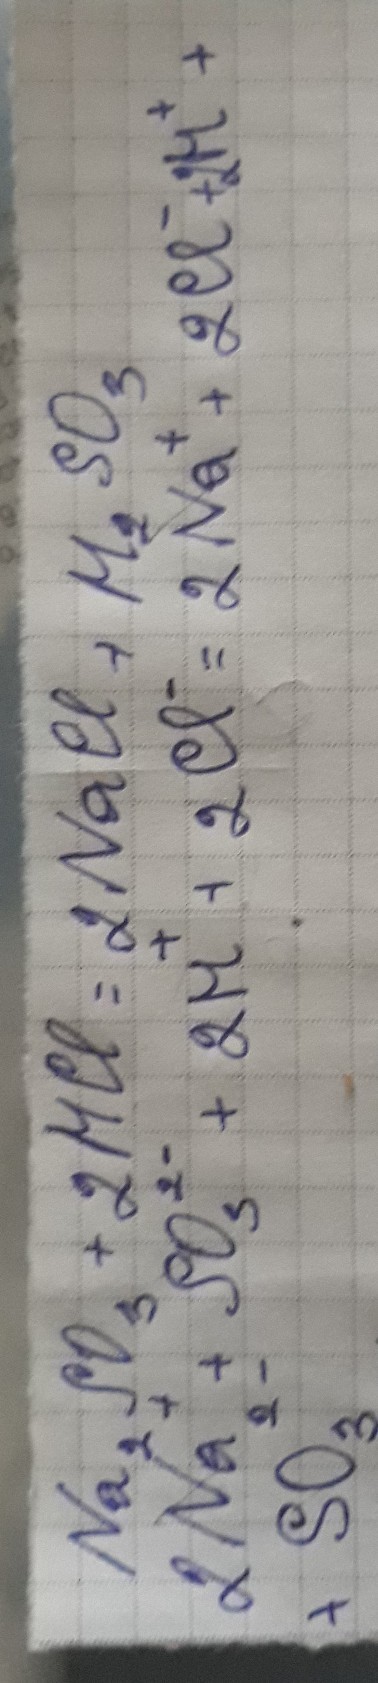 Na₂SO₃ + 2HCl = 2NaCl + H₂SO₃
2Na⁺ + SO₃²⁻ + 2H⁺ + 2Cl⁻ = 2Na⁺ + 2Cl⁻ + 2H⁺ +
+ SO₃²⁻